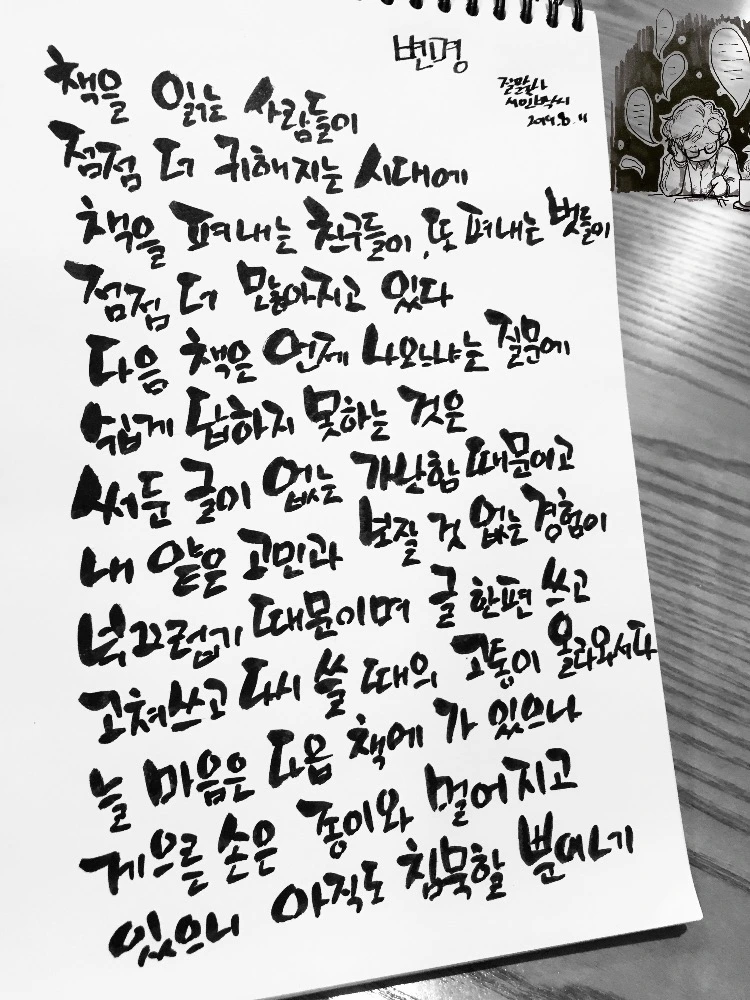 변명
책을 읽는 사람들이
점점 더 귀해지는 시대에
책을 펴내는 친구들이, 또 펴내는 벗들이
점점 더 많아지고 있다
다음 책은 언제 나오냐는 질문에
쉽게 답하지 못하는 것은
써둔 글이 없는 가난함 때문이고
내 얕은 고민과 보잘 것 없는 경험이
부끄럽기 때문이며 글 한편 쓰고
고쳐쓰고 다시 쓸 때의 고통이 올라와서다
늘 마음은 다음 책에 가 있으나
게으른 손은 종이와 멀어지고
있으니 아직도 침묵할